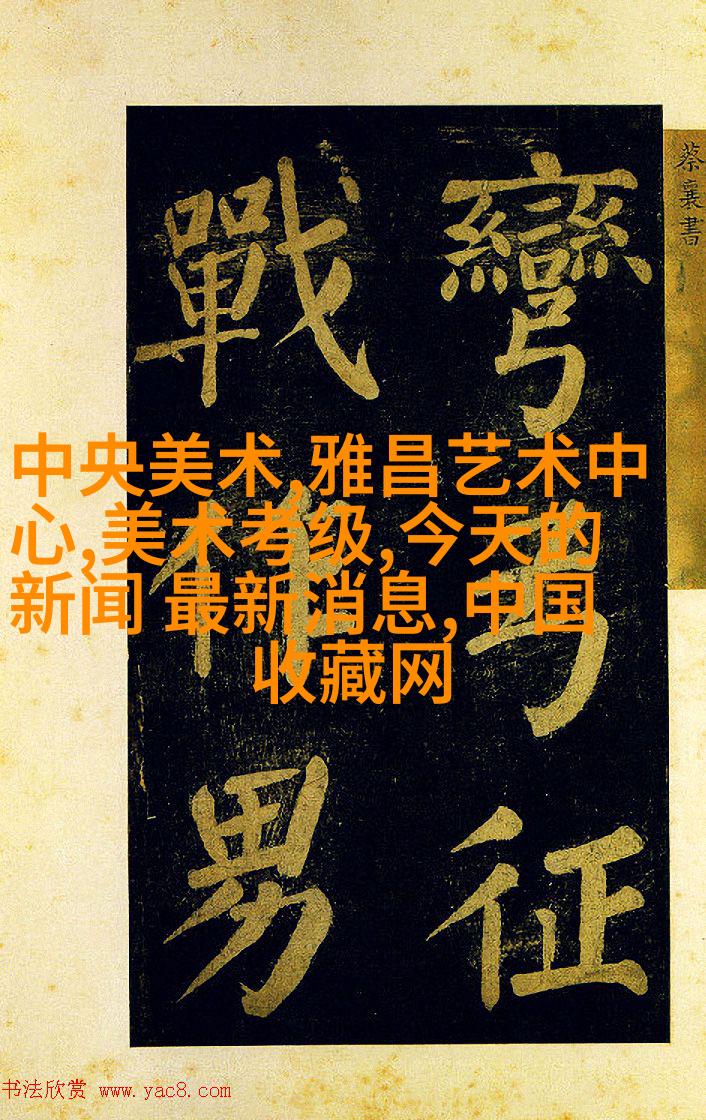 蔡襄書
彎弓征
戰作男
中央美术,雅昌艺术中
心,美术考级,今天的
新闻 最新消息,中国
收藏网
书法欣赏 www.yac8.com